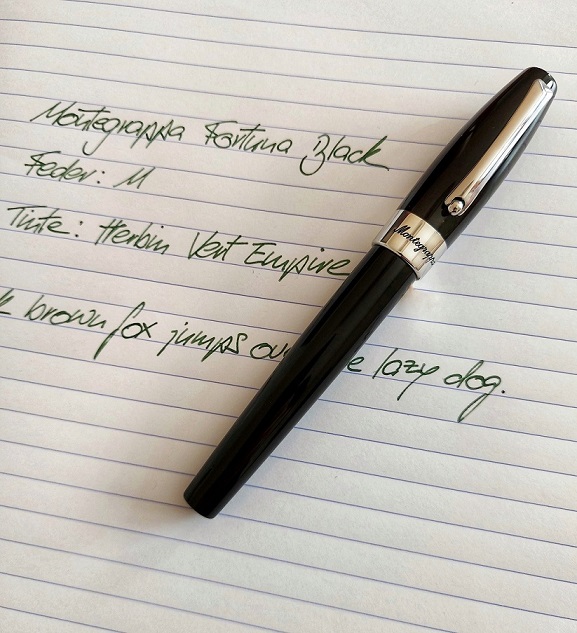 Montegrappa Fortuna Black
Feder: M
Tinte: Herbin Vert Empire
brown fox jumps lazy dog.
Montegrappa